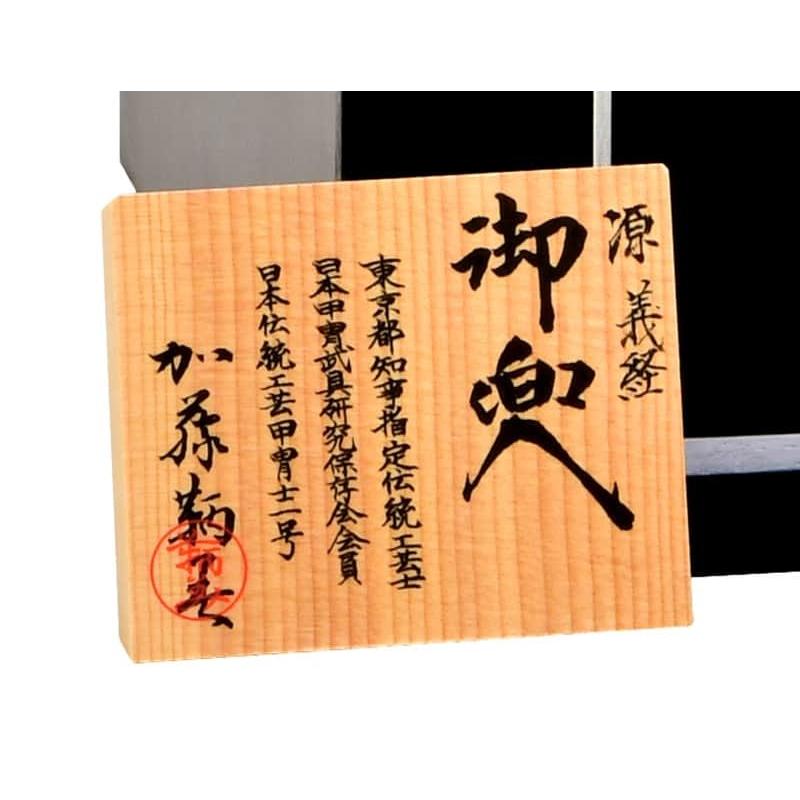 源義経
御兜
東京都知事指定伝統工芸士
日本甲冑武具研究保存会会員
日本伝統工芸甲冑士一号
加藤鞆美